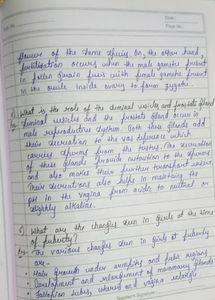 flower of the same species on the other hand,
fertilisation occurs when the male gamete present
in pollen grain fuses with female gamete present
in the ovule inside ovary to form zygote.
What is the role of the seminal vesicles and prostate gland
Seminal vesicles and the prostate gland occur in
male reproductive system. Both these glands add
their secretion to the vas deferens which
carries sperms from the testes. The secretions
of these glands provide nutrition to the sperms
and also makes their further transport easier.
Their secretions also helps in maintaining the
pH in the vagina from acidic to neutral or
slightly alkaline.
What are the changes seen in girls at the time
of puberty?
The various changes seen in girls at puberty
are -
Hair growth under armpits and pubic regions
Development and enlargement of mammary glands
Fallopian tubes, uterus and vagina enlarge